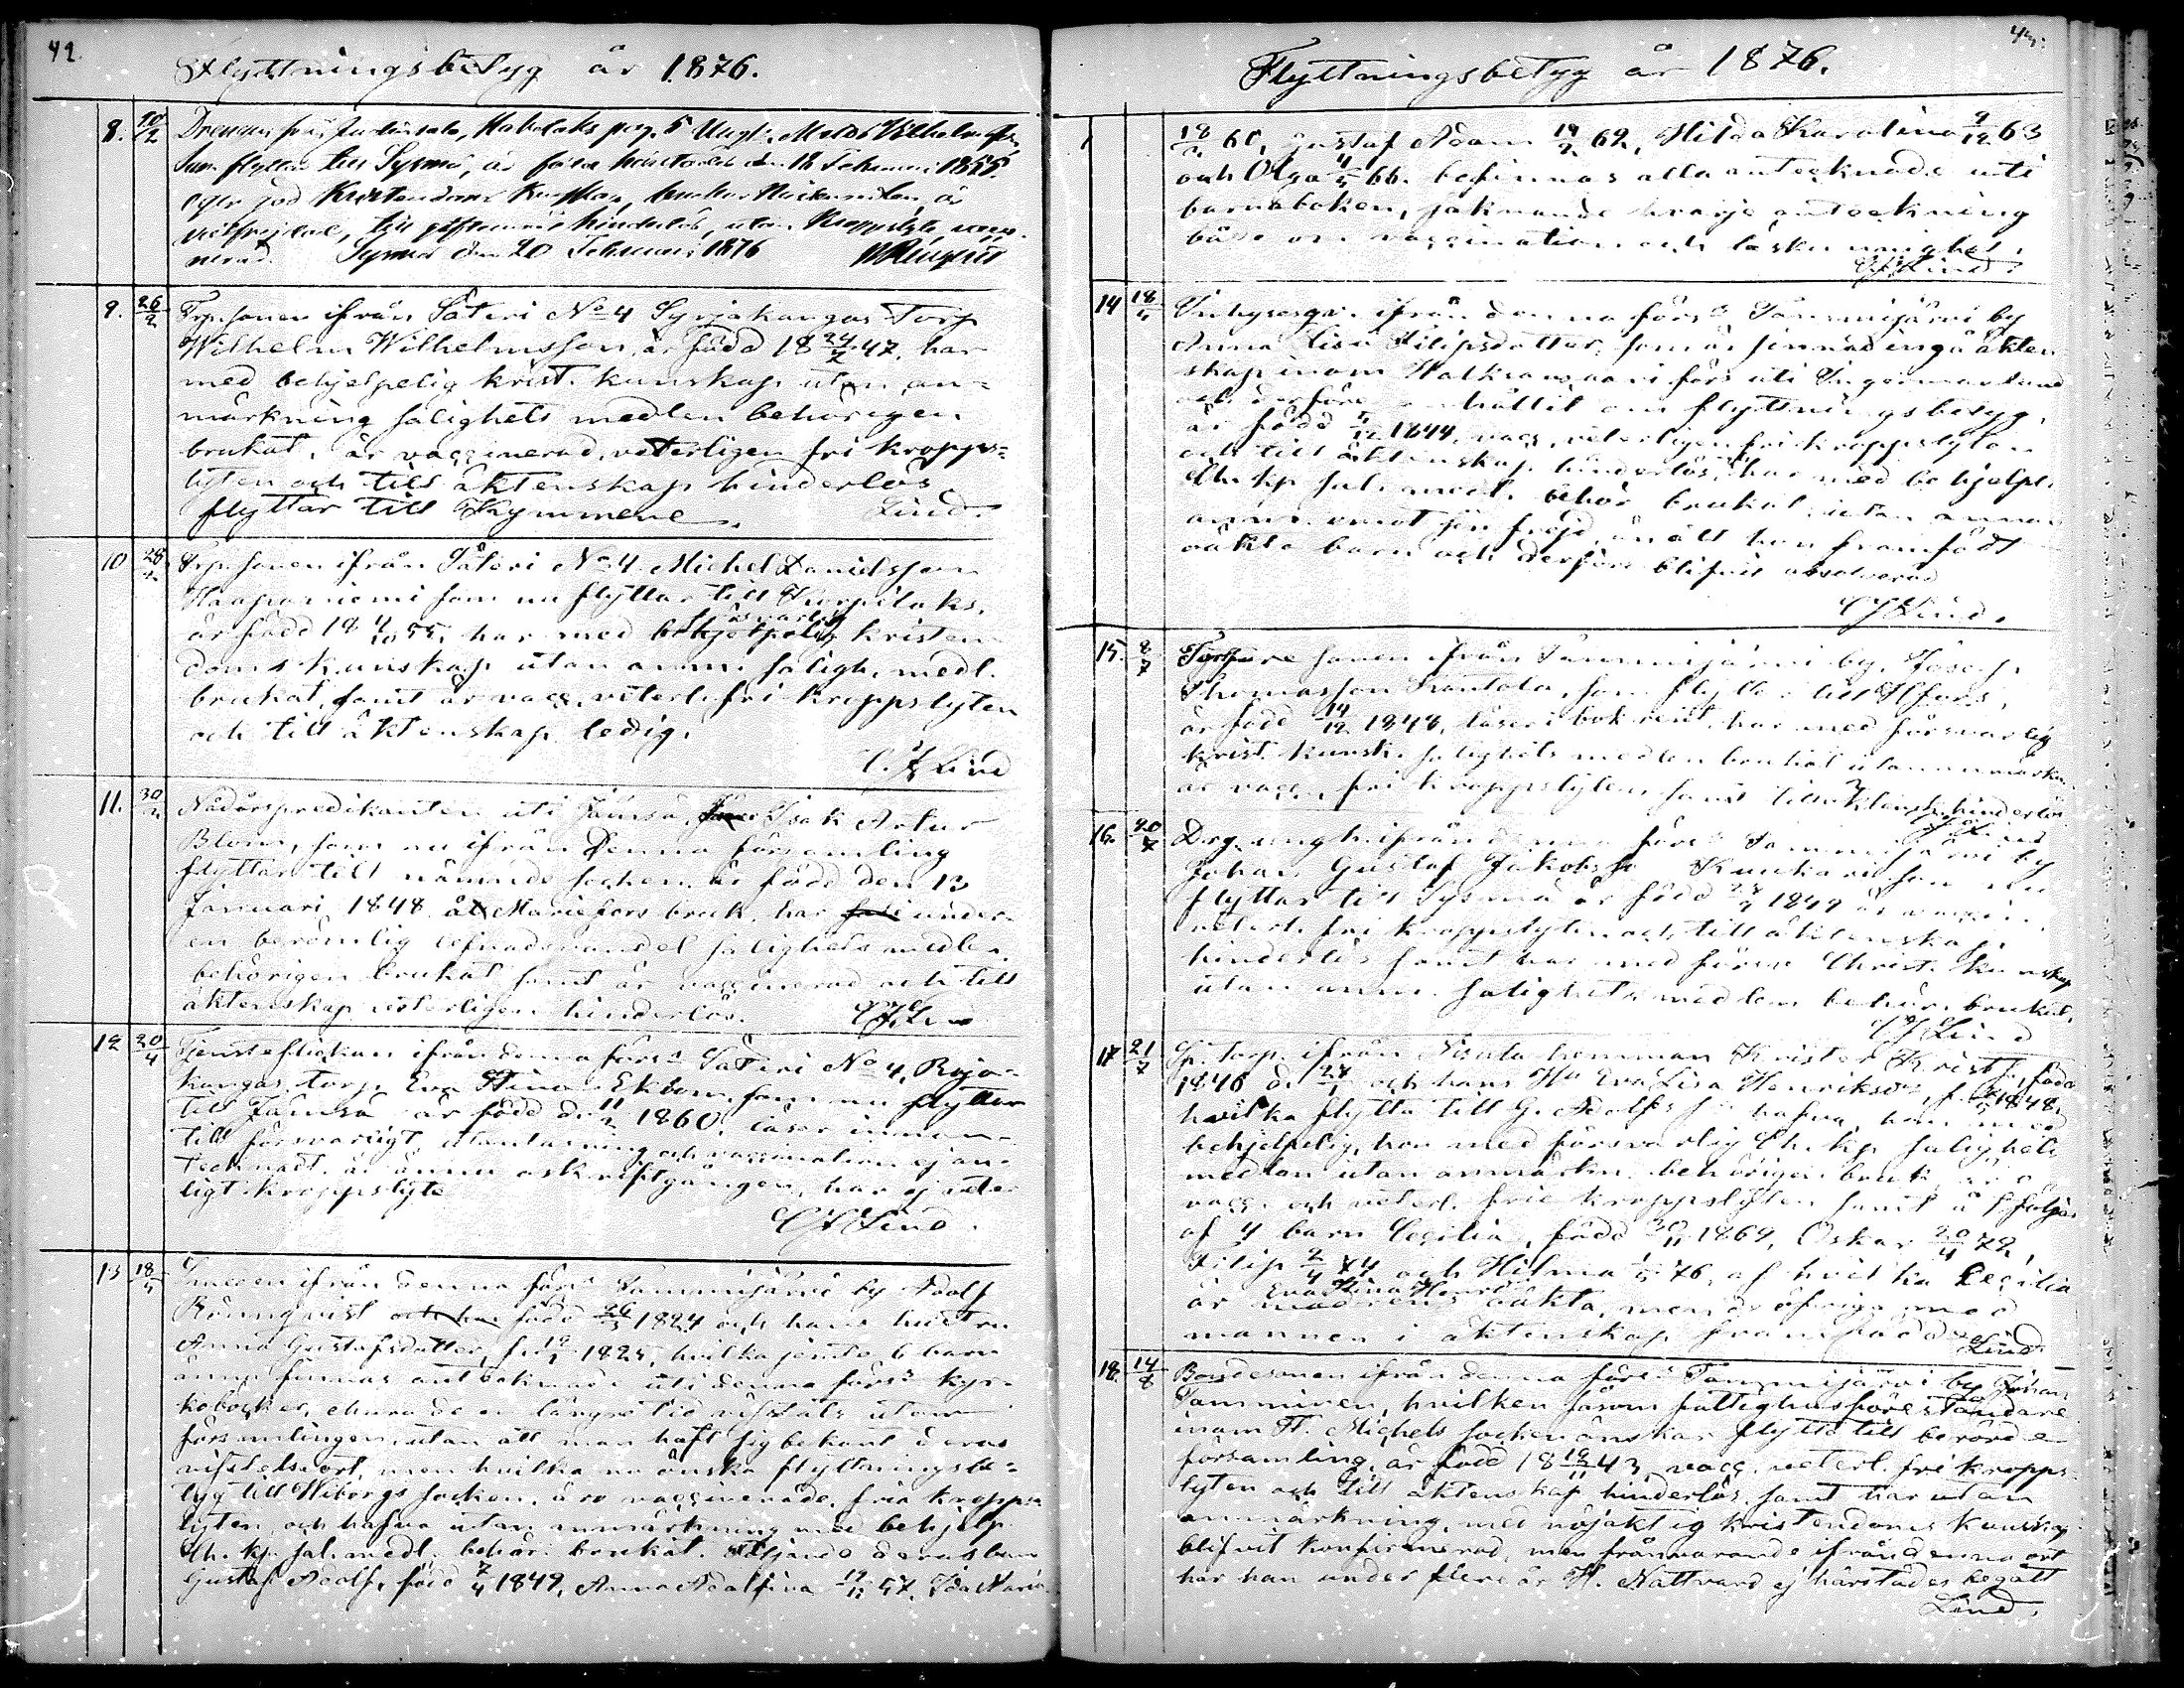 42.
Flyttningsbetyg år 1876.
8. 20/2 Drengen från Judinsalo, Habolaks pog. 5
Som flyttar till Sysmä, är född härstädes den 18 Februari 1855.
eger god Kristendoms Kunskap,
välfrejdad, till giftermål hinderlös, utan kroppslyte, vacci-
nerad. Sysmä den 20 Februari 1876
9. 26/2 Trp. sonen ifrån Säteri No 4 Syrjäkangas Torp
Wilhelm Wilhelmsson, är född 18 24/7 47, har
med behjelpelig krist. kunskap utan an-
märkning salighets medlen behörigen
brukat, är vaccinerad, veterligen fri kropps-
lyten och till äktenskap hinderlös
flyttar till Kymmene. Lind.
10 28/2 Trp. sonen ifrån Säteri No 4. Michel Danielsson
Haapaniemi som nu flyttar till Korpilaks,
försvarlig
är född 18 4/10 55, har med behjelpelig kristen
doms kunskap utan anm. saligh. medl.
brukat, samt är vacc. veterl. fri kroppslyten
och till äktenskap ledig.
C. J. Lind
11. 30/3 Nådårspredikanten uti Jämsä, Isak Artur
Blom, som nu ifrån denna församling
flyttar till nämnde socken är född den 13
Januari 1848 å Mariefors bruk, har under
en berömlig lefnadsvandel salighets medlen
behörigen brukat samt är vaccinerad och till
äktenskap veterligen hinderlös. C J Lind
12 20/4 Tjensteflickan ifrån denna förs:s Säteri No 4,
kangas torp, Eva Stina Ekbom, som nu flyttar
till Jämsä är född d. 11/2 1860, läser innan-
till försvarligt, utanläsning och vaccination ej an-
tecknadt, är ännu oskriftgången, har ej veter
ligt kroppslyte
C J Lind.
13 18/5 Smeden ifrån denna förs:s Tammijärvi by Adolf
Rönnqvist född 26/5 1824 och hans hustru
Anna Gustafsdotter, f. 12/1 1825, hvilka jemte 6 barn
ännu finnas antecknade uti denna förs:s kyr-
koböcker, ehuru de en längre tid vistats utom
församlingen utan att man haft sig bekant deras
vistelseort, men hvilka nu önska flyttningsbe-
tyg till Wiborgs socken, äro vaccinerade, fria kropps-
lyten, och hafva utan anmärkning med behjelp.
Ch. kp. sal. medl. behör. brukat. Följande deras barn
Gustaf Adolf, född 7/4 1849, Anna Adolfina 19/11 57, Ida Maria
43.
Flyttningsbetyg år 1876.
18/2 60, Gustaf Adam 19/2 62, Hilda Karolina 9/12 63
och Olga 4/5 66. befinnas alla antecknade uti
barnaboken, saknande hvarje anteckning
både om vaccination och läskunnighet.
C J Lind.
14 18/5 Inhysesqv. ifrån denna förs:s Tammijärvi by
Anna Lisa Filipsdotter, som är sinnad ingå äkten
skap inom förs uti Ingermanland
och derföre anhållit om flyttningsbetyg,
är född 5/12 1844, vacc., veterligen fri kroppslyten
och till äktenskap hinderlös, har med behjelpl.
Ch. kp sal. medl. behör brukat utan annan
anm. emot sin frejd, än att hon framfödt
oäkta barn och derföre blifvit absolverad
C J Lind.
15. 8/7 Torpare sonen ifrån Tammijärvi by, Josef
Thomasson Rantala, som flyttar till Hfors,
är född 14/12 1848, läser i bok rent, har med försvarlig
krist. kunsk. salighets medlen brukat utan anmärkn.
är vacc., fri kroppslyten samt till äktenskp. hinderlös
C J Lind
16. 20/7 Drg. yngl. ifrån denna förs:s Tammijärvi by
Johan Gustaf Jakobsson som nu
flyttar till Sysmä är född 28/4 1849 är vaccin.
veterl. fri kroppslyten och till äktenskap
hinderlös samt har med försv. Christ. kunskap
utan anm. salighets medlen behör. brukat.
C J Lind
17 21/7 Sp. torp. ifrån Nisula hemman Krister Kristf., född
1846 d. 28/1 och hans Hu Eva Lisa Henriksdr, f. 1848,
hvilka flytta till G. Adolfs hafva, han med
behjelpelig, hon med försvarlig Ch. kp. salighets
medlen utan anmärkn. behörigen bruk. äro
vacc. och veterl. fria kroppslyten samt åtföljas
af 4 barn Cecilia, född 30/11 1869, Oskar 20/4 72,
Filip 2/4 74 och Hilma 1/5 76, af hvilka Cecilia
Eva Stina Henrd:r
är oäkta, men de öfriga med
mannen i äktenskap framfödda. Lind
18. 14/8 Bondesonen ifrån denna förs:s Tammijärvi by Johan
Tamminen, hvilken såsom fattighusföreståndare
inom St. Michels socken önskar flytta till berörde
församling, är född 18 19/11 43, vacc. veterl. fri kropps-
lyten och till äktenskap hinderlös, samt har utan
anmärkning, med nöjaktig kristendoms kunskap
blifvit konfirmerad, men frånvarande ifrån denna ort
har han under flere år H. Nattvard ej härstädes begått
Lind.